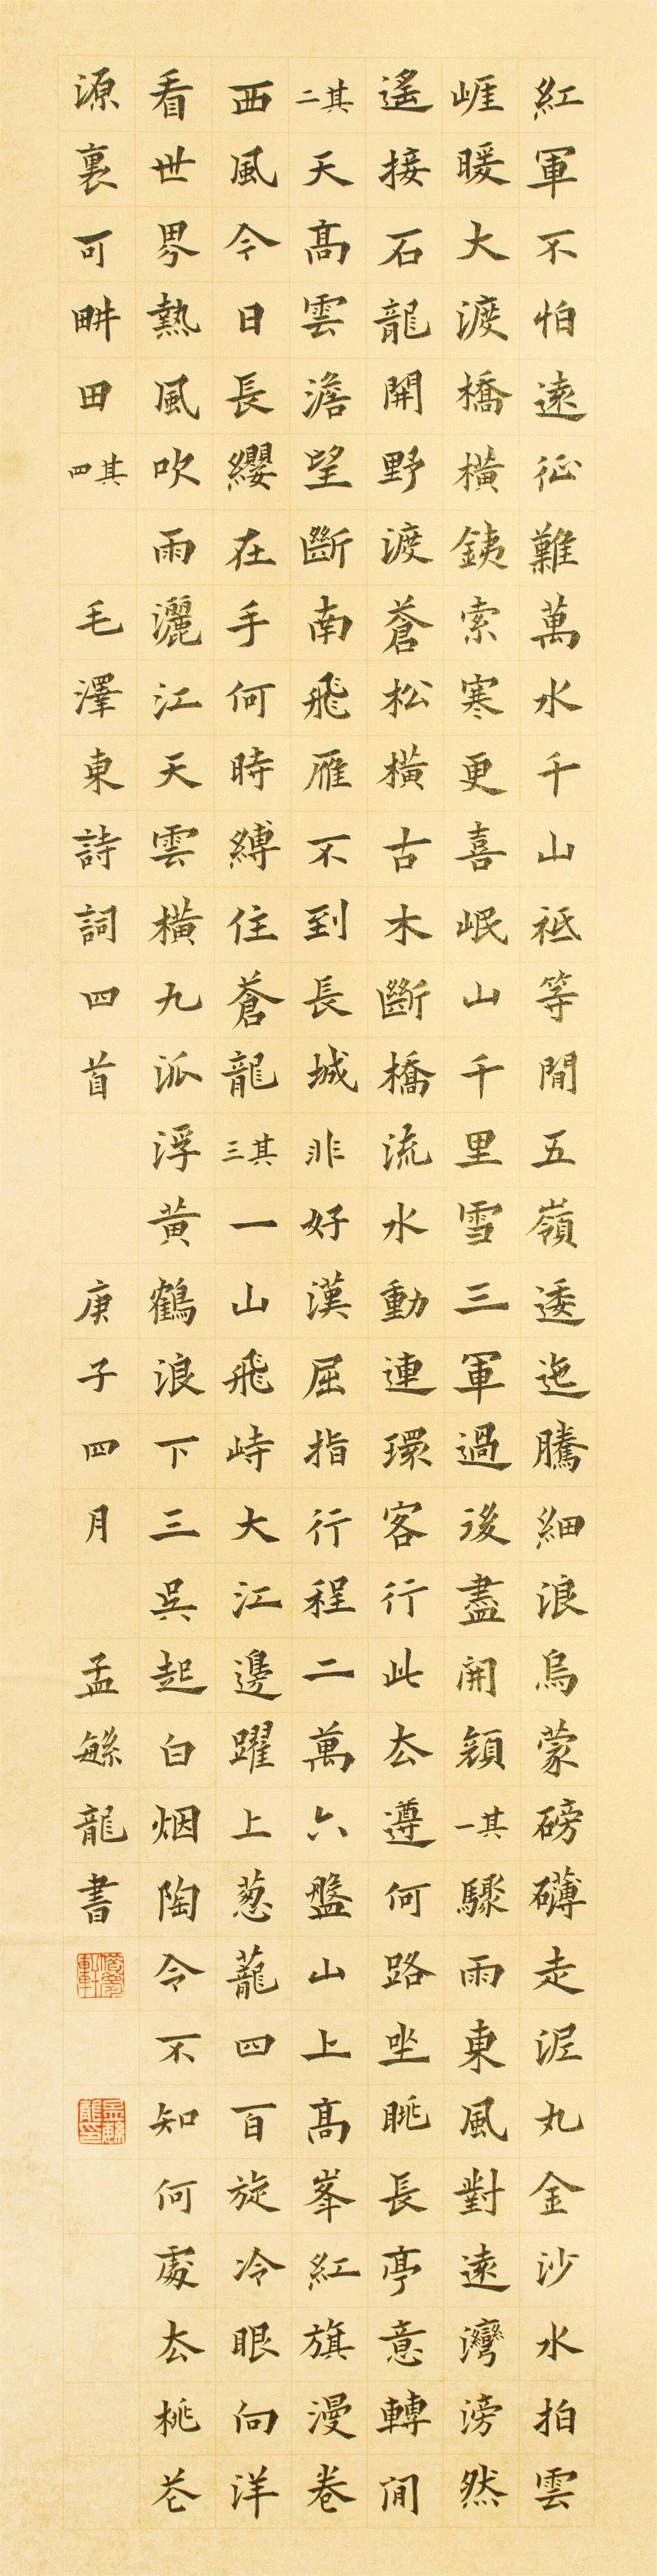 紅軍不怕遠征難萬水千山祗等閒五嶺逶迤騰細浪烏蒙磅礴走泥丸金沙水拍雲
崕暖大渡橋橫銕索寒更喜岷山千里雪三軍過後盡開顏其一驟雨東風對遠灣滂然
遙接石龍開野渡蒼松橫古木斷橋流水動連環客行此去遵何路坐眺長亭意轉閒
其二天高雲澹望斷南飛雁不到長城非好漢屈指行程二萬六盤山上高峯紅旗漫卷
西風今日長纓在手何時縛住蒼龍其三一山飛峙大江邊躍上葱蘢四百旋冷眼向洋
看世界熱風吹雨灑江天雲橫九派浮黃鶴浪下三吳起白烟陶令不知何處去桃花
源裏可畊田其四 毛澤東詩詞四首 庚子四月 孟緐龍書